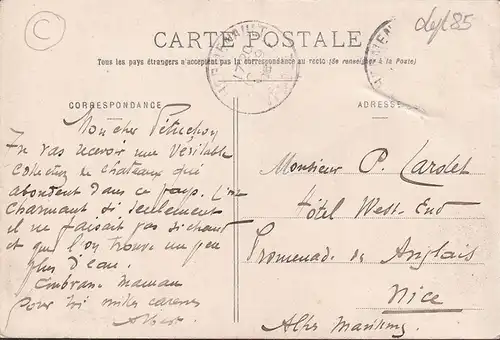 C
dept 85
CARTE POSTALE
Tous les pays étrangers n'acceptent pas la correspondance au recto (Se renseigner à la Poste)
CORRESPONDANCE
Mon cher
Tu vas recevoir une véritable
collection de châteaux qui
abondent dans ce pays.
charmant si seulement
il ne faisait pas si chaud
et que l'on trouve un peu
plus d'eau.
Embrasse maman
pour toi mille caresses
Albert
ADRESSE
Monsieur P. Lardet
Hôtel West-End
Promenade des Anglais
Nice
Alpes Maritimes